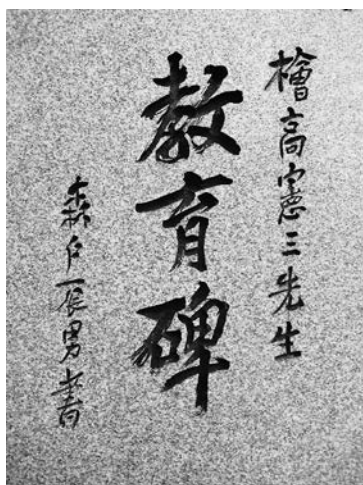 檜高憲三先生
教育碑
森戸辰男書